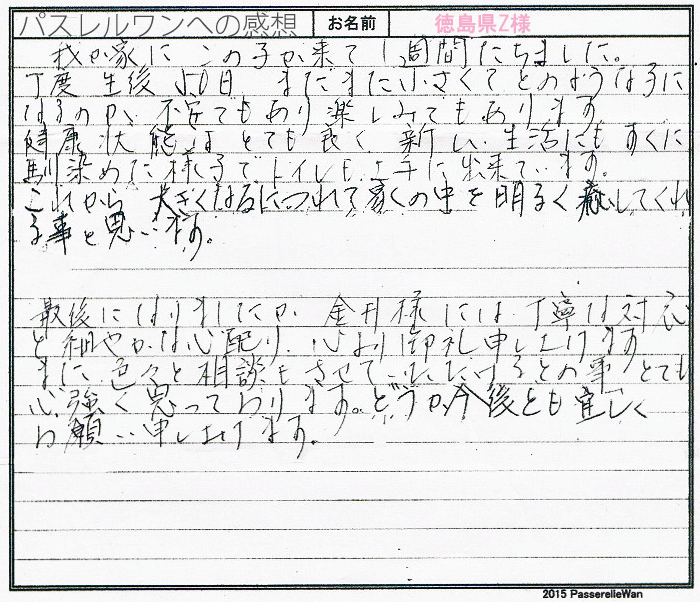 パスレルワンへの感想 お名前 徳島県Z様
我が家に この子が来て1週間たちました。
丁度 生後 50日 まだまだ小さくてどのような子に
なるのか、不安でもあり楽しみでもあります。
健康状態はとても良く、新しい生活にもすぐに
馴染めた様子で、トイレも上手に出来ています。
これから 大きくなるにつれて家の中を明るく癒してくれ
る事と思います。
最後になりましたが 金井様には丁寧な対応
と細やかな心配り、心より御礼申し上げます。
また色々と相談もさせていただけるとの事とても
心強く思っております。どうか今後とも宜しく
お願い申し上げます。
2015 PasserelleWan